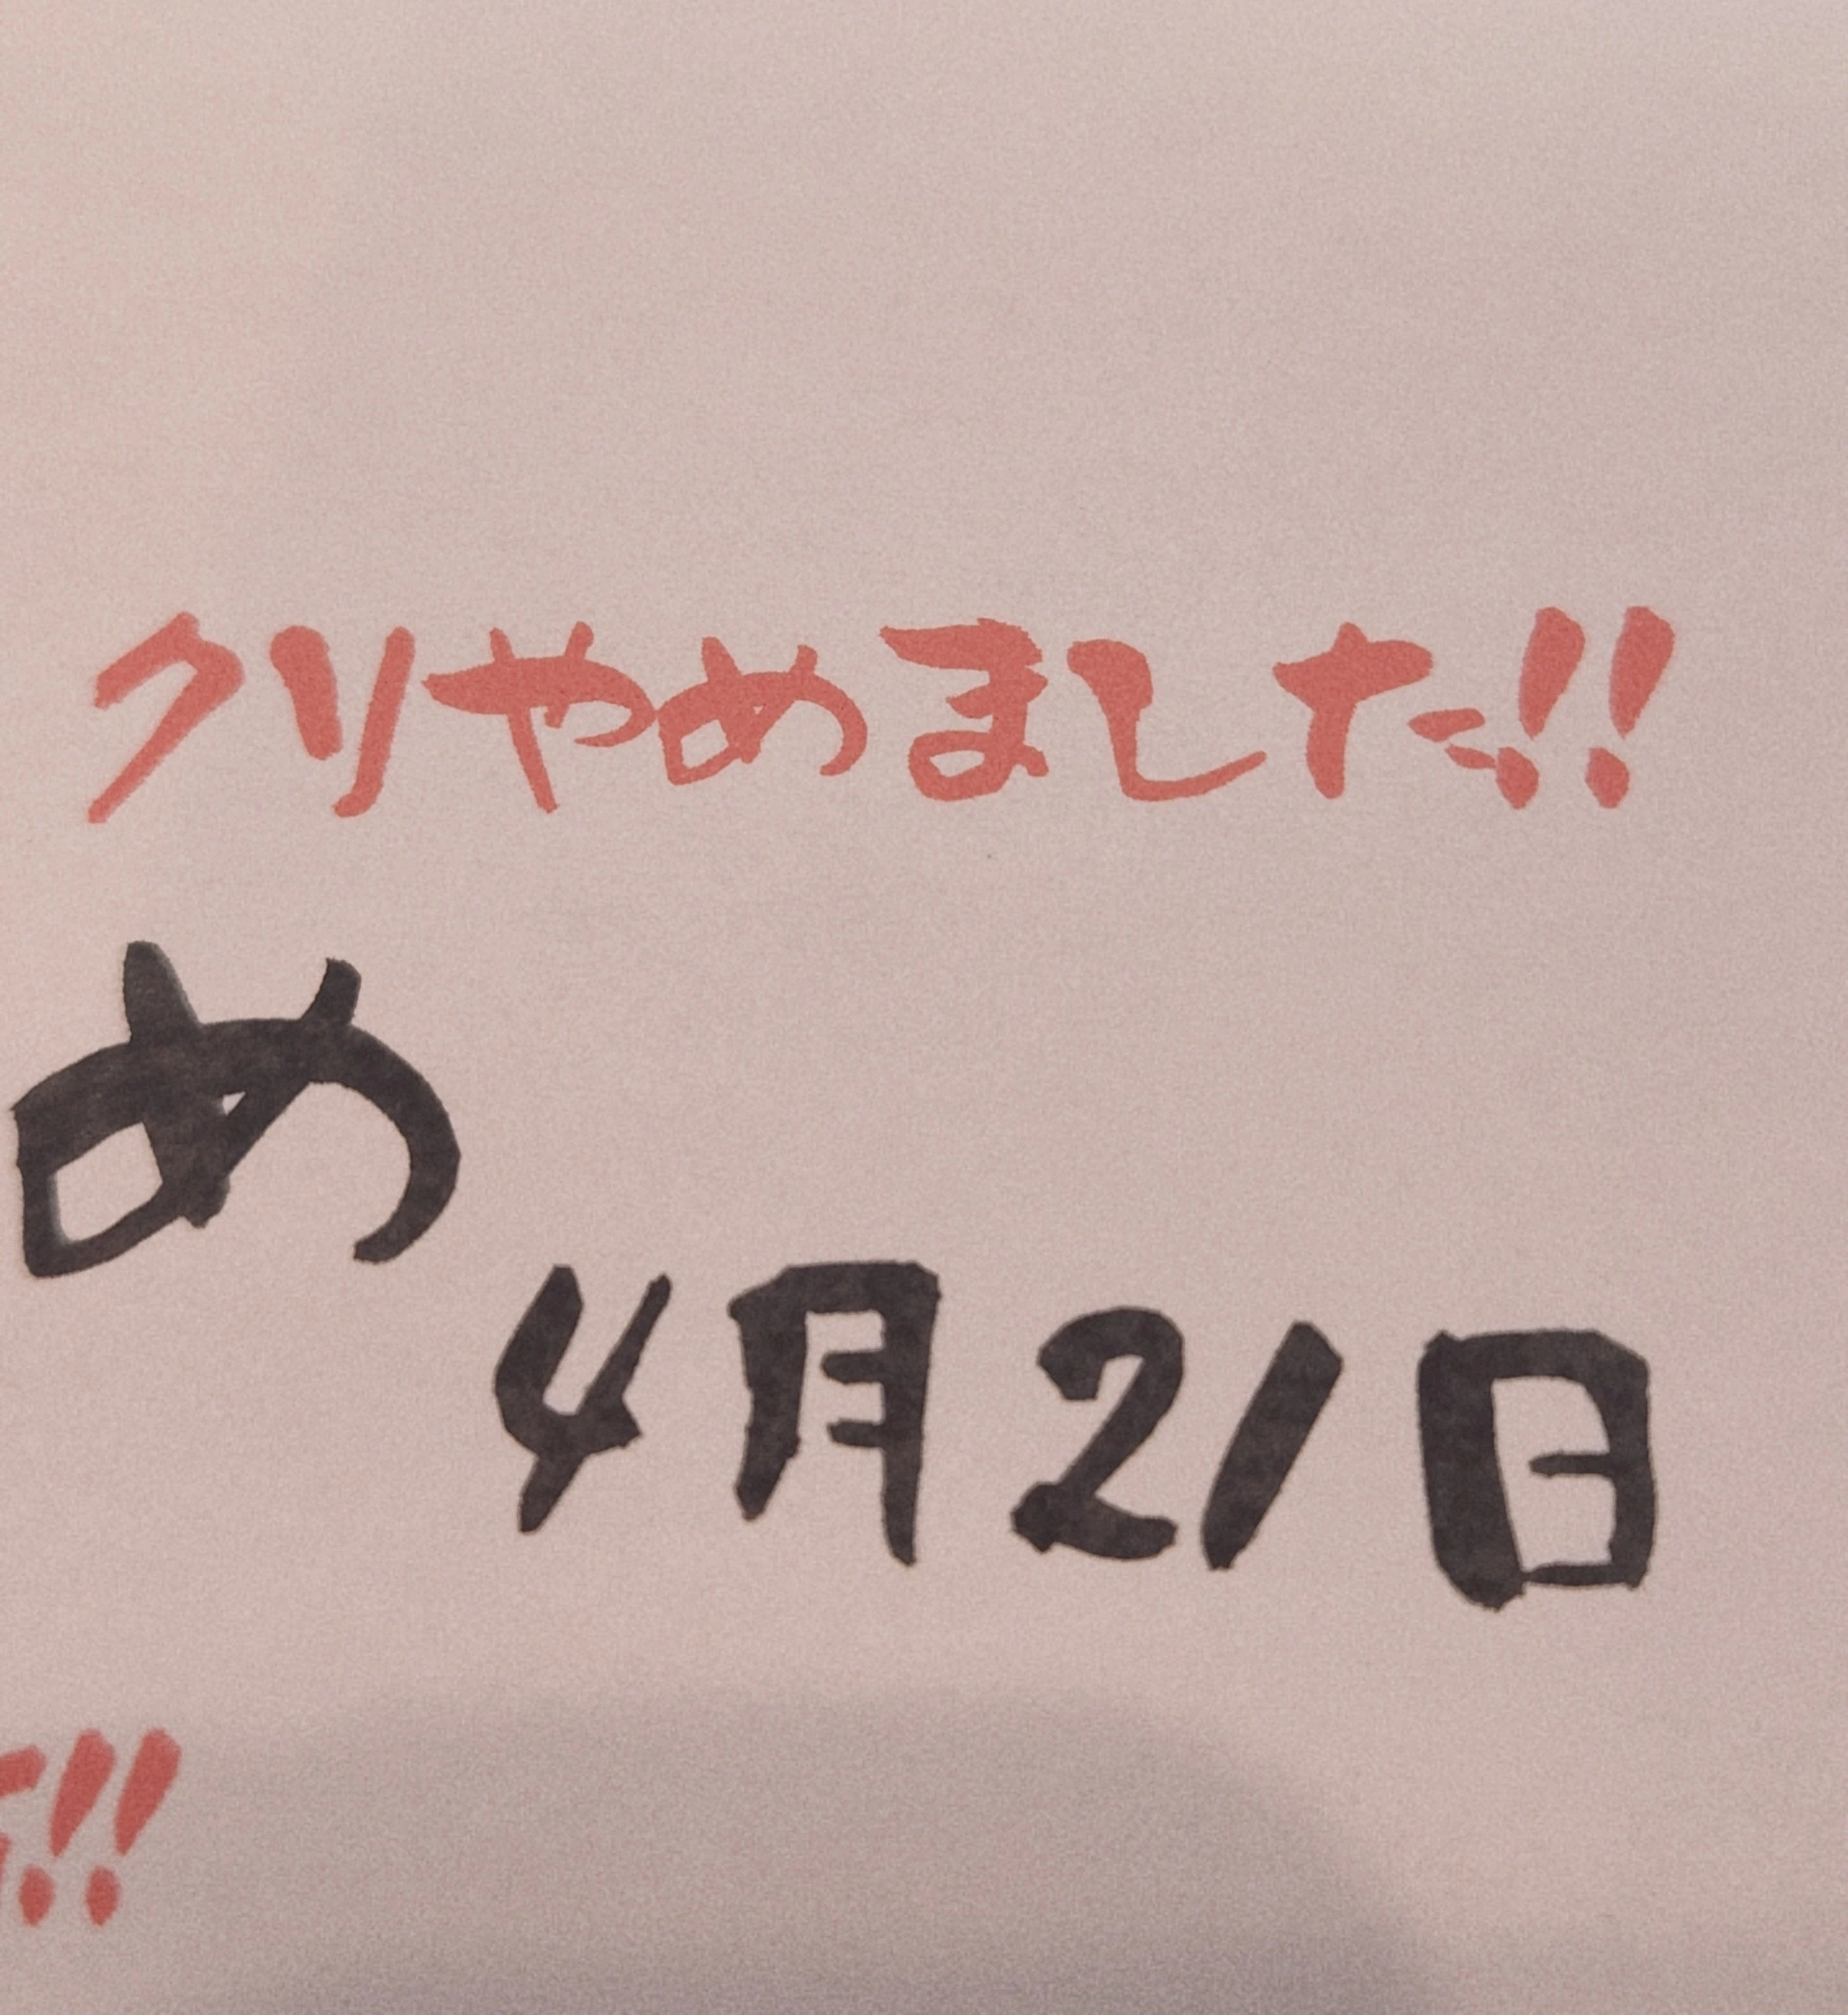 クリやめました!!
め
4月21日
!!